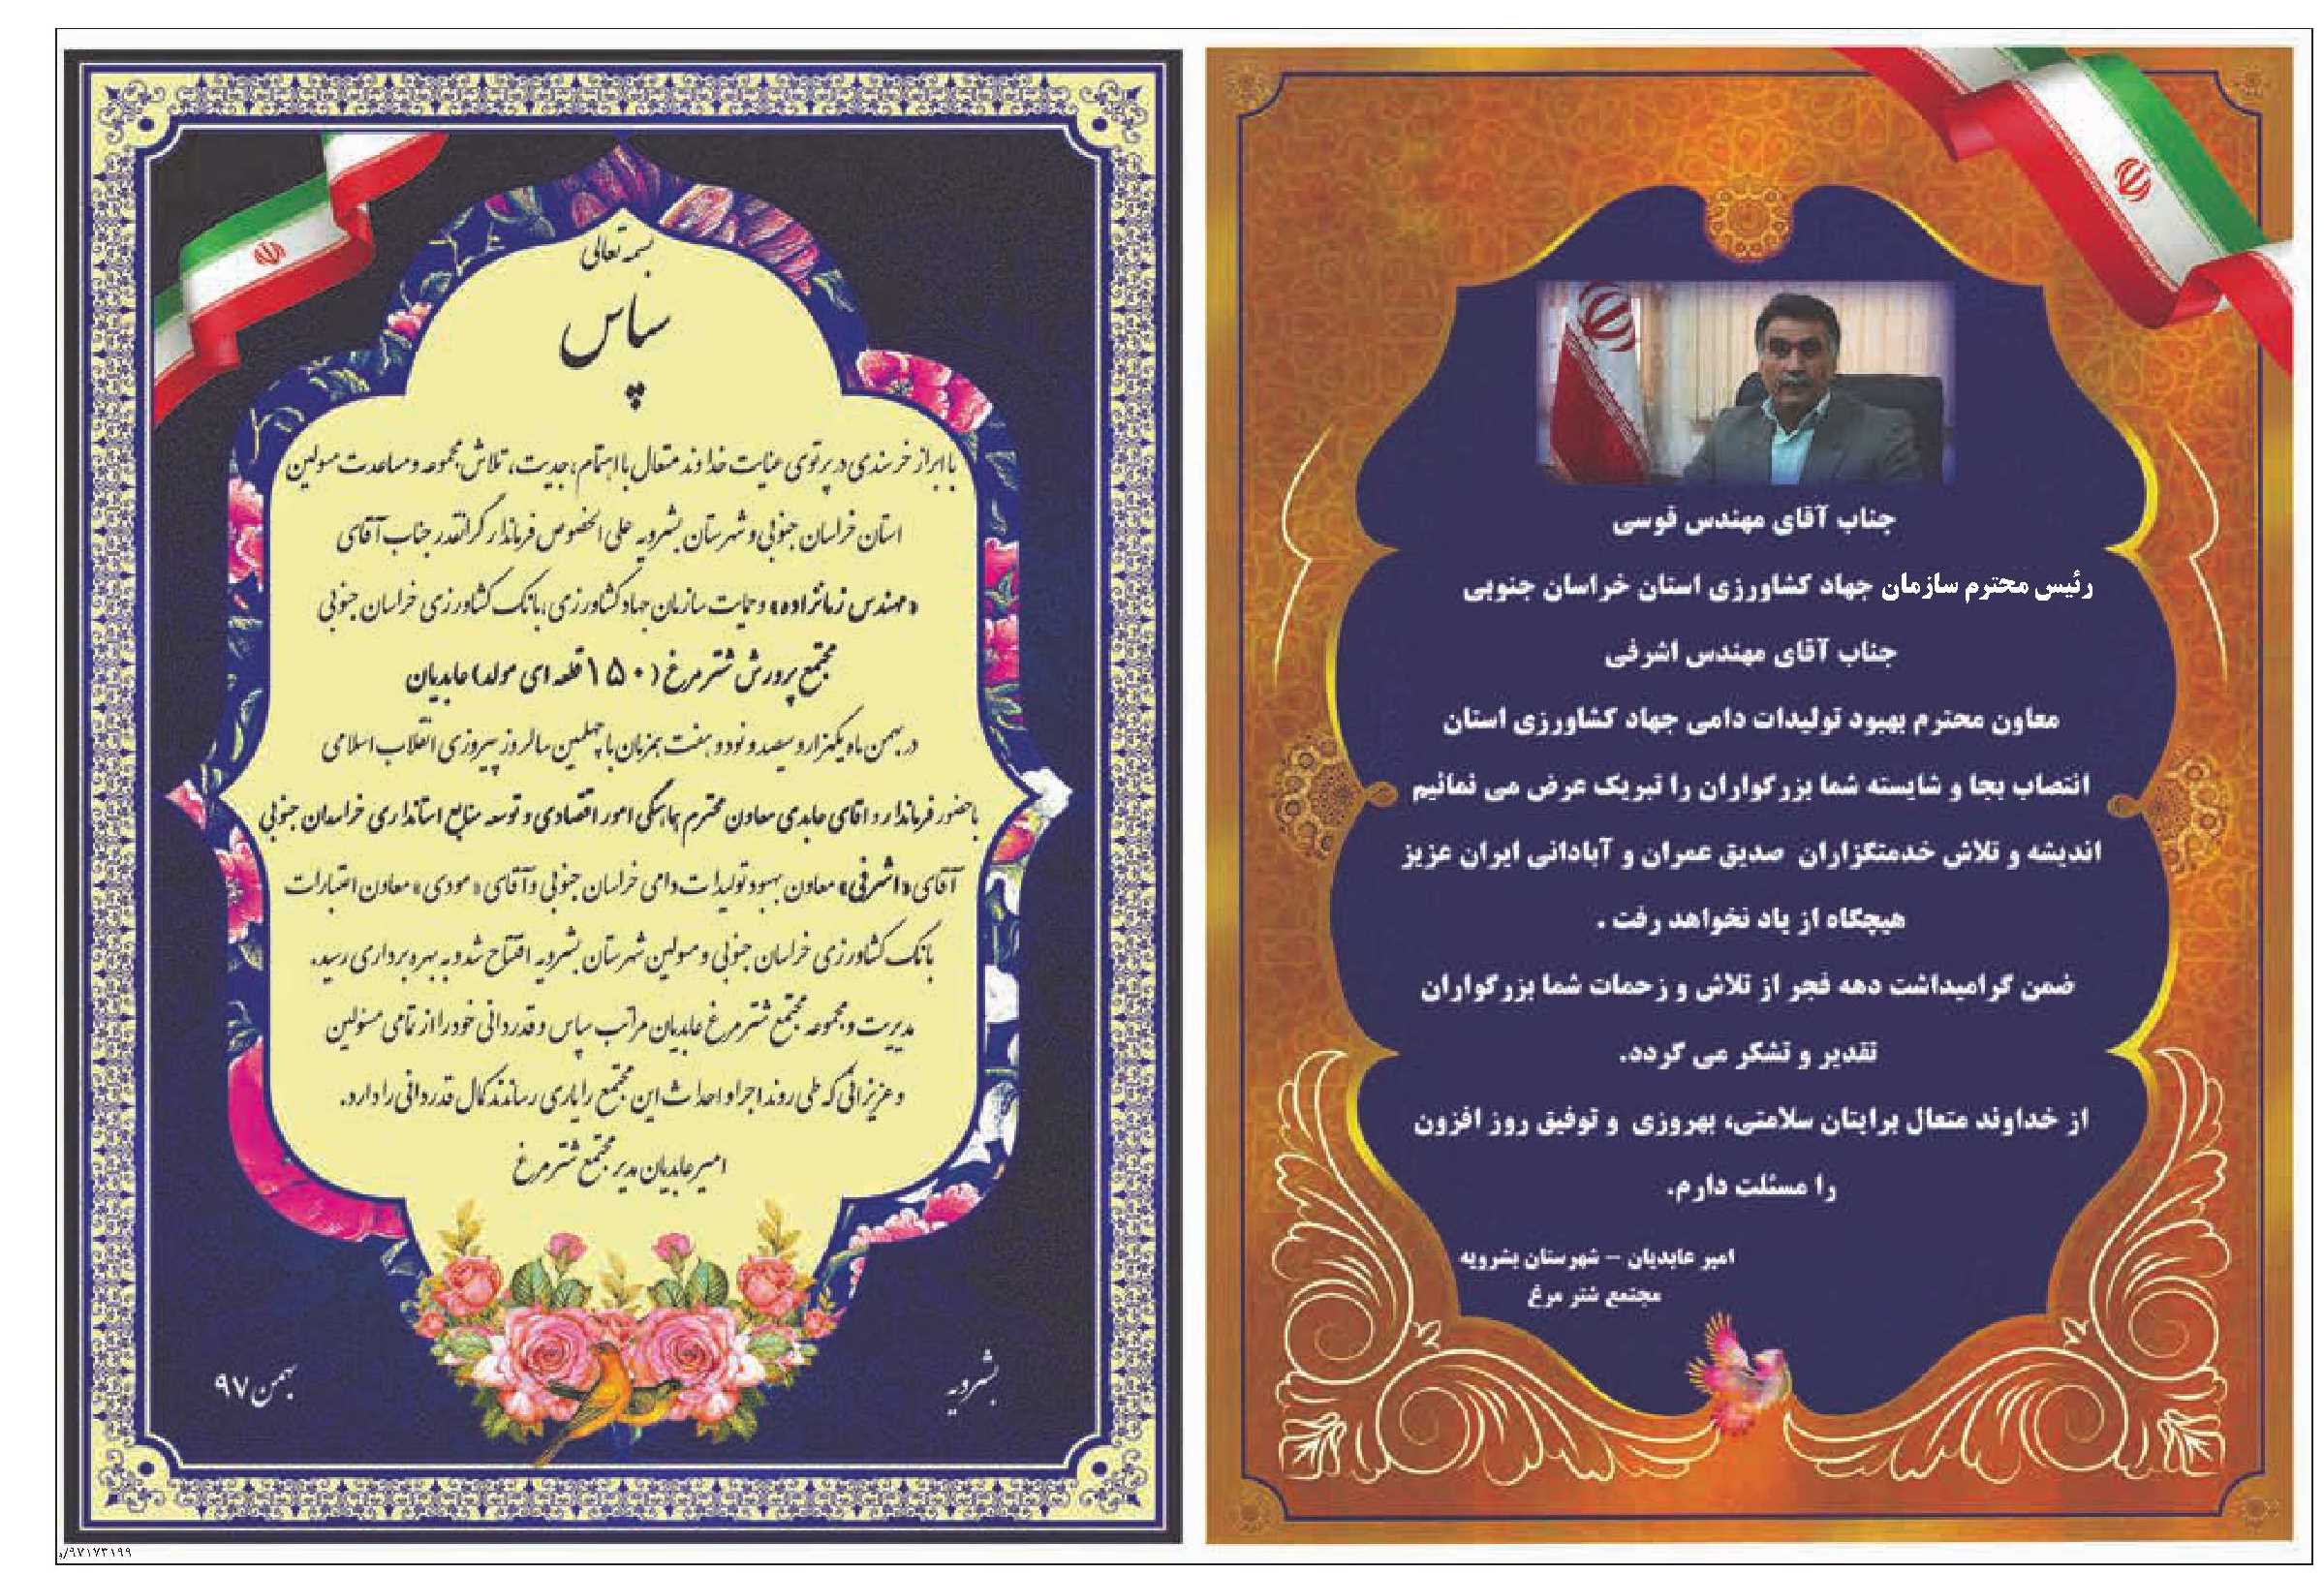 جناب آقای مهندس قوسی
رئیس محترم سازمان جهاد کشاورزی استان خراسان جنوبی
جناب آقای مهندس اشرفی
معاون محترم بهبود تولیدات دامی جهاد کشاورزی استان
انتصاب بجا و شایسته شما بزرگواران را تبریک عرض می نمائیم
اندیشه و تلاش خدمتگزاران صدیق عمران و آبادانی ایران عزیز
هیچگاه از یاد نخواهد رفت .
ضمن گرامیداشت دهه فجر از تلاش و زحمات شما بزرگواران
تقدیر و تشکر می گردد.
از خداوند متعال برایتان سلامتی، بهروزی و توفیق روز افزون
را مسئلت دارم.
امیر عابدیان – شهرستان بشرویه
مجتمع شتر مرغ
بسمه تعالی
سپاس
با ابراز خرسندی در پرتوی عنایت خداوند متعال با اهتمام، جدیت، تلاش مجموعه و مساعدت مسولین
استان خراسان جنوبی و شهرستان بشرویه علی الخصوص فرماندار گرانقدر جناب آقای
«مهندس زمانزاده» و حمایت سازمان جهاد کشاورزی، بانک کشاورزی خراسان جنوبی
مجتمع پرورش شترمرغ (۱۵۰ قطعه ای مولد) عابدیان
در بهمن ماه یکهزار و سیصد و نود و هفت همزمان با چهلمین سالروز پیروزی انقلاب اسلامی
با حضور فرماندار و اقای عابدی معاون محترم هماهنگی امور اقتصادی و توسعه منابع استانداری خراسان جنوبی
آقای «اشرفی» معاون بهبود تولیدات دامی خراسان جنوبی و آقای «مودی» معاون اعتبارات
بانک کشاورزی خراسان جنوبی و مسولین شهرستان بشرویه افتتاح شد و به بهره برداری رسید.
مدیریت و مجموعه مجتمع شترمرغ عابدیان مراتب سپاس و قدردانی خود را از تمامی مسئولین
و عزیزانی که طی روند اجرا و احداث این مجتمع را یاری رساندند کمال قدردانی را دارد.
امیر عابدیان مدیر مجتمع شترمرغ
بشرویه
بهمن ۹۷
۹۷۱۷۳۱۹۹/و